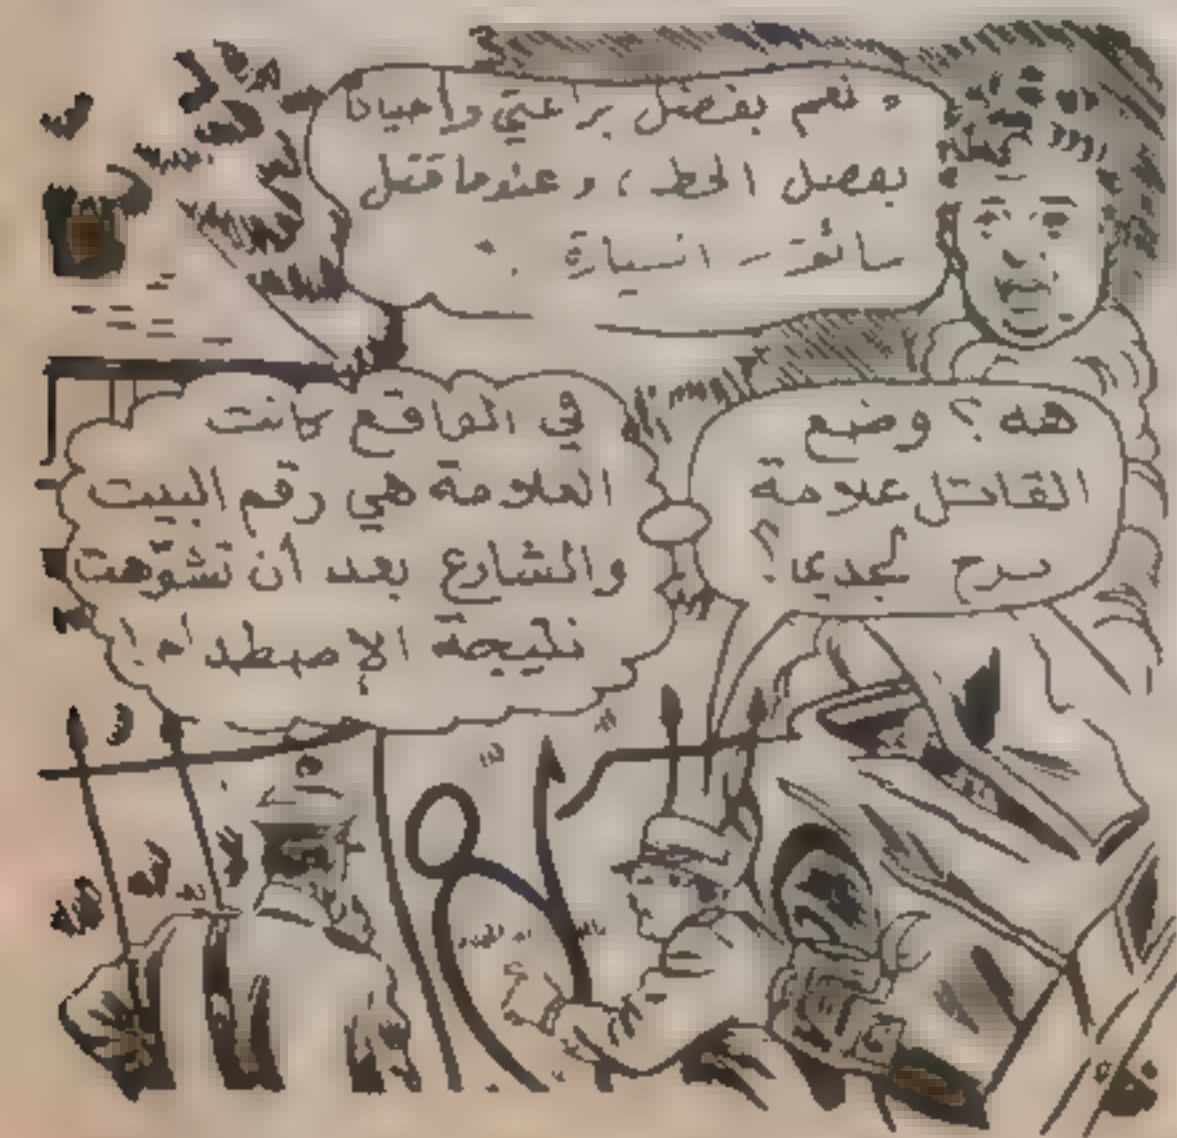 نعم بفضل براعتي وأحيانا
بفضل الحظ، وعندما قتل
سائق السيارة
هه؟ وضع
القاتل علامة
في الواقع كانت
العلامة هي رقم البيت
والشارع بعد أن تشوّهت
نتيجة الإصطدام!